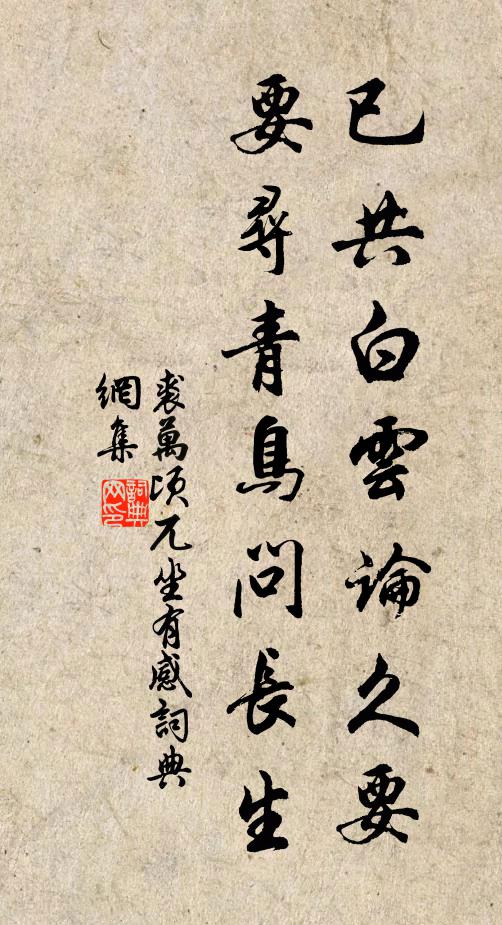 已共白雲論久要
要尋青鳥問長生
裘萬頃兀坐有感詞典
網集
詞典
网印